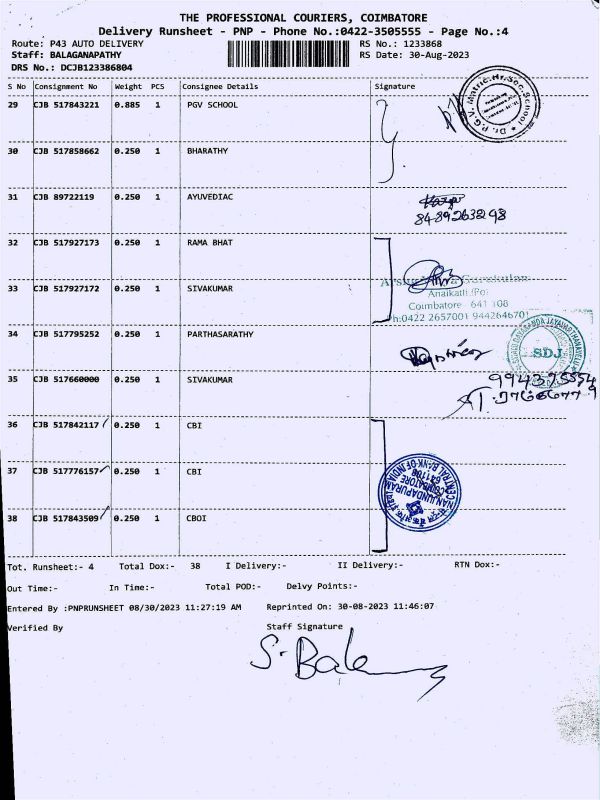 THE PROFESSIONAL COURIERS, COIMBATORE
Delivery Runsheet - PNP - Phone No.:0422-3505555 - Page No.:4
Route: P43 AUTO DELIVERY RS No.: 1233868
Staff: BALAGANAPATHY RS Date: 30-Aug-2023
DRS No.: DCJB123386804
S No Consignment No Weight PCS Consignee Details Signature
29 CJB 517843221 0.885 1 PGV SCHOOL
30 CJB 517858662 0.250 1 BHARATHY
31 CJB 89722119 0.250 1 AYUVEDIAC
8489263298
32 CJB 517927173 0.250 1 RAMA BHAT
33 CJB 517927172 0.250 1 SIVAKUMAR
Gurukulam
Anaikatti (Po)
Coimbatore - 641 108
Ph:0422 2657001 9442646701
34 CJB 517795252 1 0.250 1 PARTHASARATHY
SDJ
35 CJB 517660000 0.250 1 SIVAKUMAR
36 CJB 517842117 0.250 1 CBI
37 CJB 517776157 0.250 1 CBI
CENTRAL BANK OF INDIA
NANJUNDAPURAM
COIMBATORE
38 CJB 517843509 0.250 1 CBOI
Tot. Runsheet:- 4 Total Dox:- 38 I Delivery:- II Delivery:- RTN Dox:-
Out Time:- In Time:- Total POD:- Delvy Points:-
Entered By :PNPRUNSHEET 08/30/2023 11:27:19 AM Reprinted On: 30-08-2023 11:46:07
Verified By Staff Signature
S. Bala